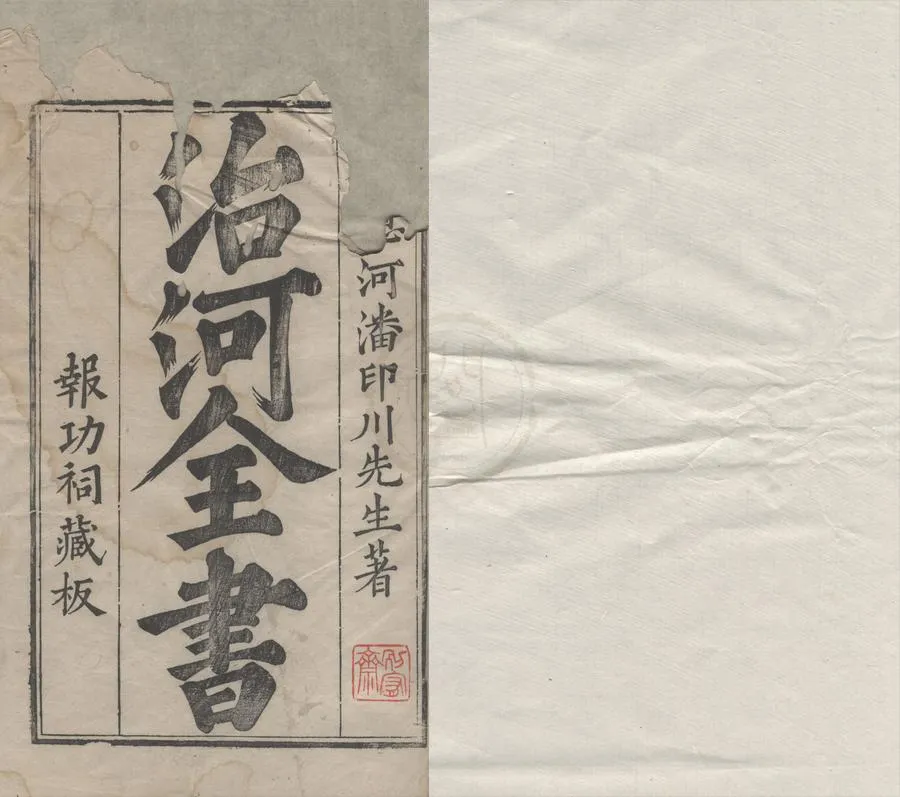 河潘印川先生著
治河全書
報功祠藏板